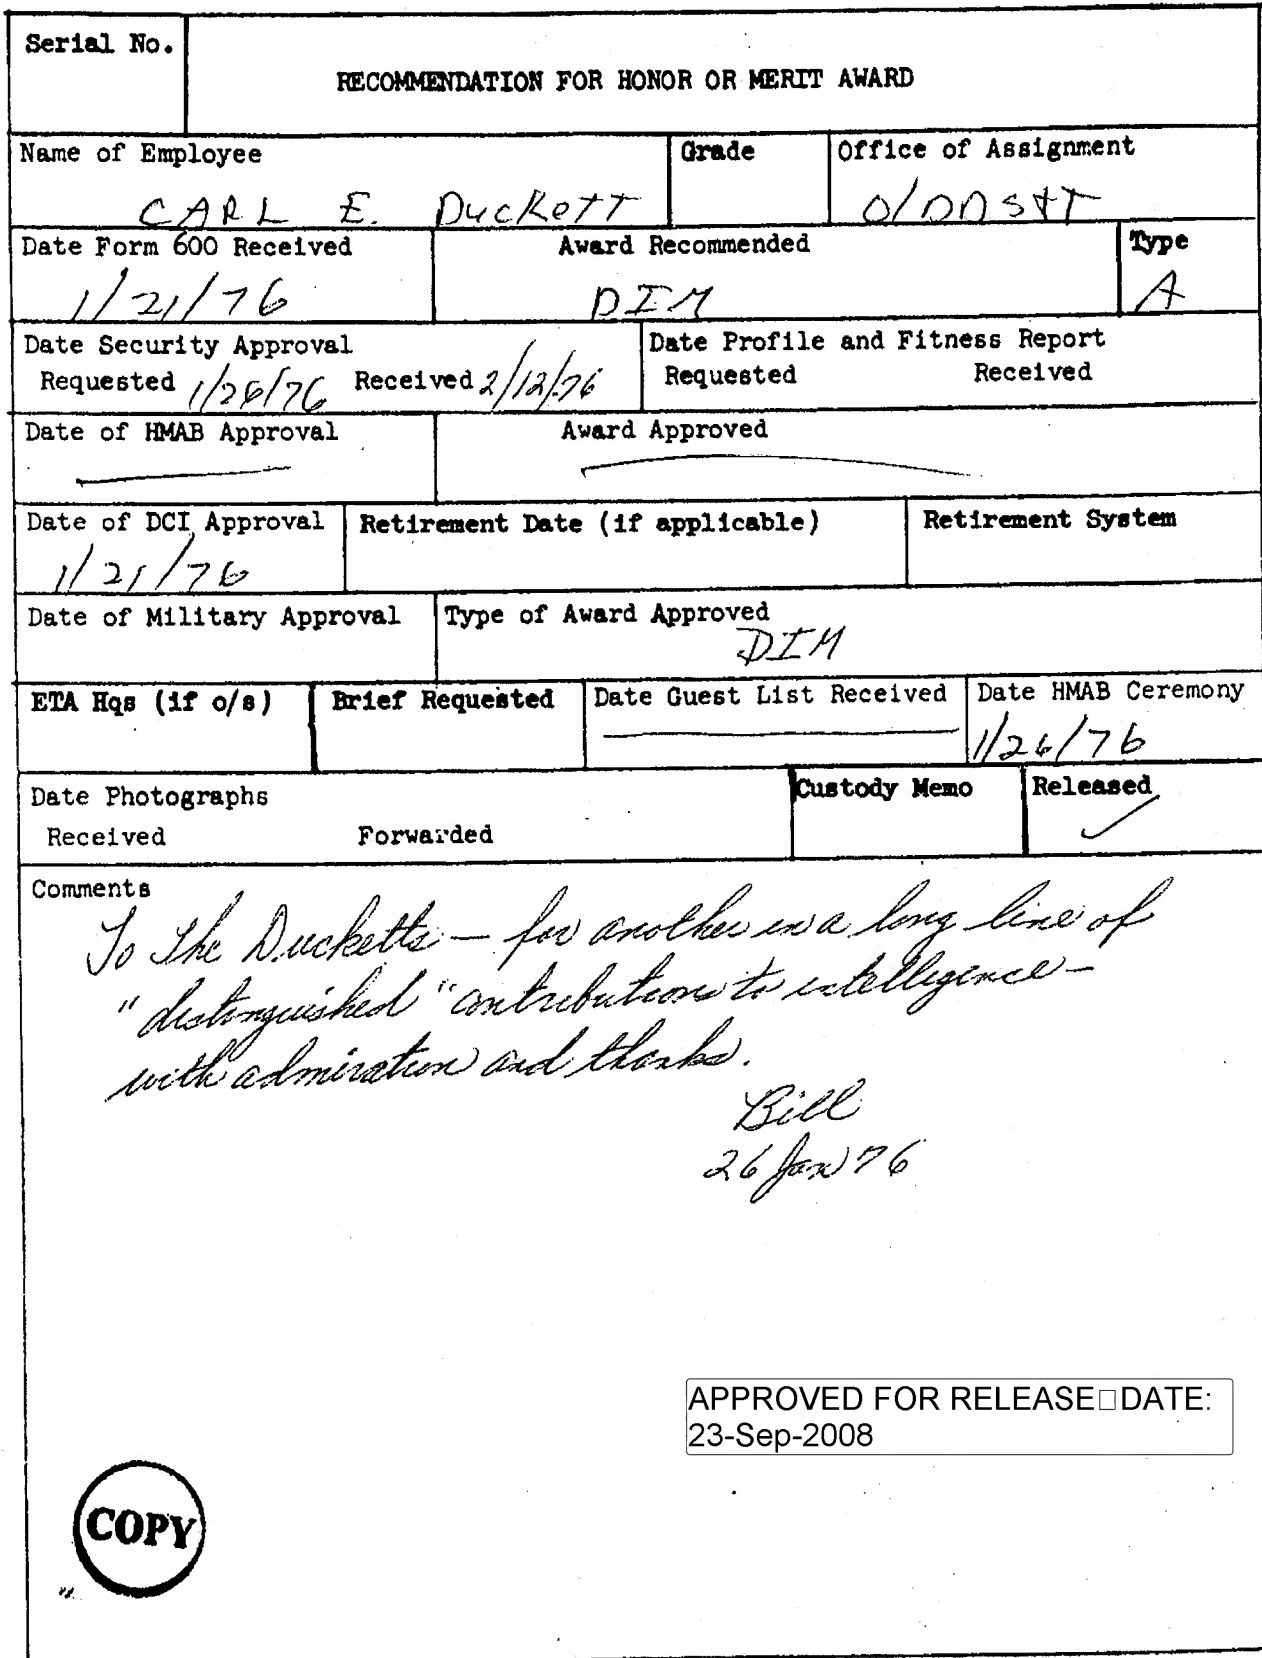 Serial No.
RECOMMENDATION FOR HONOR OR MERIT AWARD
Name of Employee
CARL E. Duckett
Grade
Office of Assignment
O/DDS&T
Date Form 600 Received
1/21/76
Award Recommended
DIM
Type
A
Date Security Approval
Requested 1/26/76 Received 2/12/76
Date Profile and Fitness Report
Requested Received
Date of HMAB Approval
Award Approved
Date of DCI Approval
1/21/76
Retirement Date (if applicable)
Retirement System
Date of Military Approval
Type of Award Approved
DIM
ETA Hqs (if o/s)
Brief Requested
Date Guest List Received
Date HMAB Ceremony
1/26/76
Date Photographs
Received Forwarded
Custody Memo
Released
Comments
To The Ducketts — for another in a long line of
"distinguished" contributions to intelligence —
with admiration and thanks.
Bill
26 Jan 76
APPROVED FOR RELEASE□DATE:
23-Sep-2008
COPY